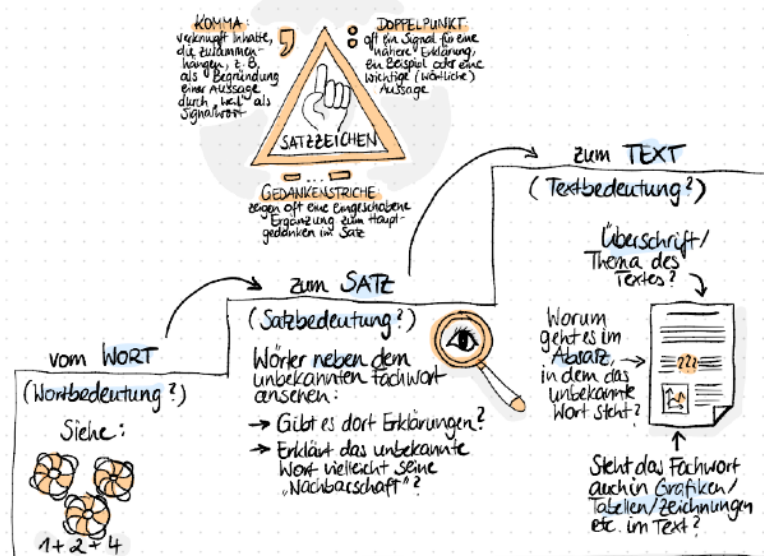 KOMMA:
verknüpft Inhalte,
die zusammen-
hängen, z.B.
als Begründung
einer Aussage
durch „weil" als
Signalwort
DOPPELPUNKT:
oft ein Signal für eine
nähere Erklärung,
ein Beispiel oder eine
wichtige (wörtliche)
Aussage
SATZZEICHEN
– ... –
GEDANKENSTRICHE:
zeigen oft eine eingeschobene
Ergänzung zum Haupt-
gedanken im Satz
vom WORT
(Wortbedeutung?)
Siehe:
1+2+4
zum SATZ
(Satzbedeutung?)
Wörter neben dem
unbekannten Fachwort
ansehen:
→ Gibt es dort Erklärungen?
→ Erklärt das unbekannte
Wort vielleicht seine
„Nachbarschaft"?
zum TEXT
(Textbedeutung?)
Überschrift/
Thema des
Textes?
Worum
geht es im
Absatz,
in dem das
unbekannte
Wort steht?
???
Steht das Fachwort
auch in Grafiken/
Tabellen/Zeichnungen
etc. im Text?